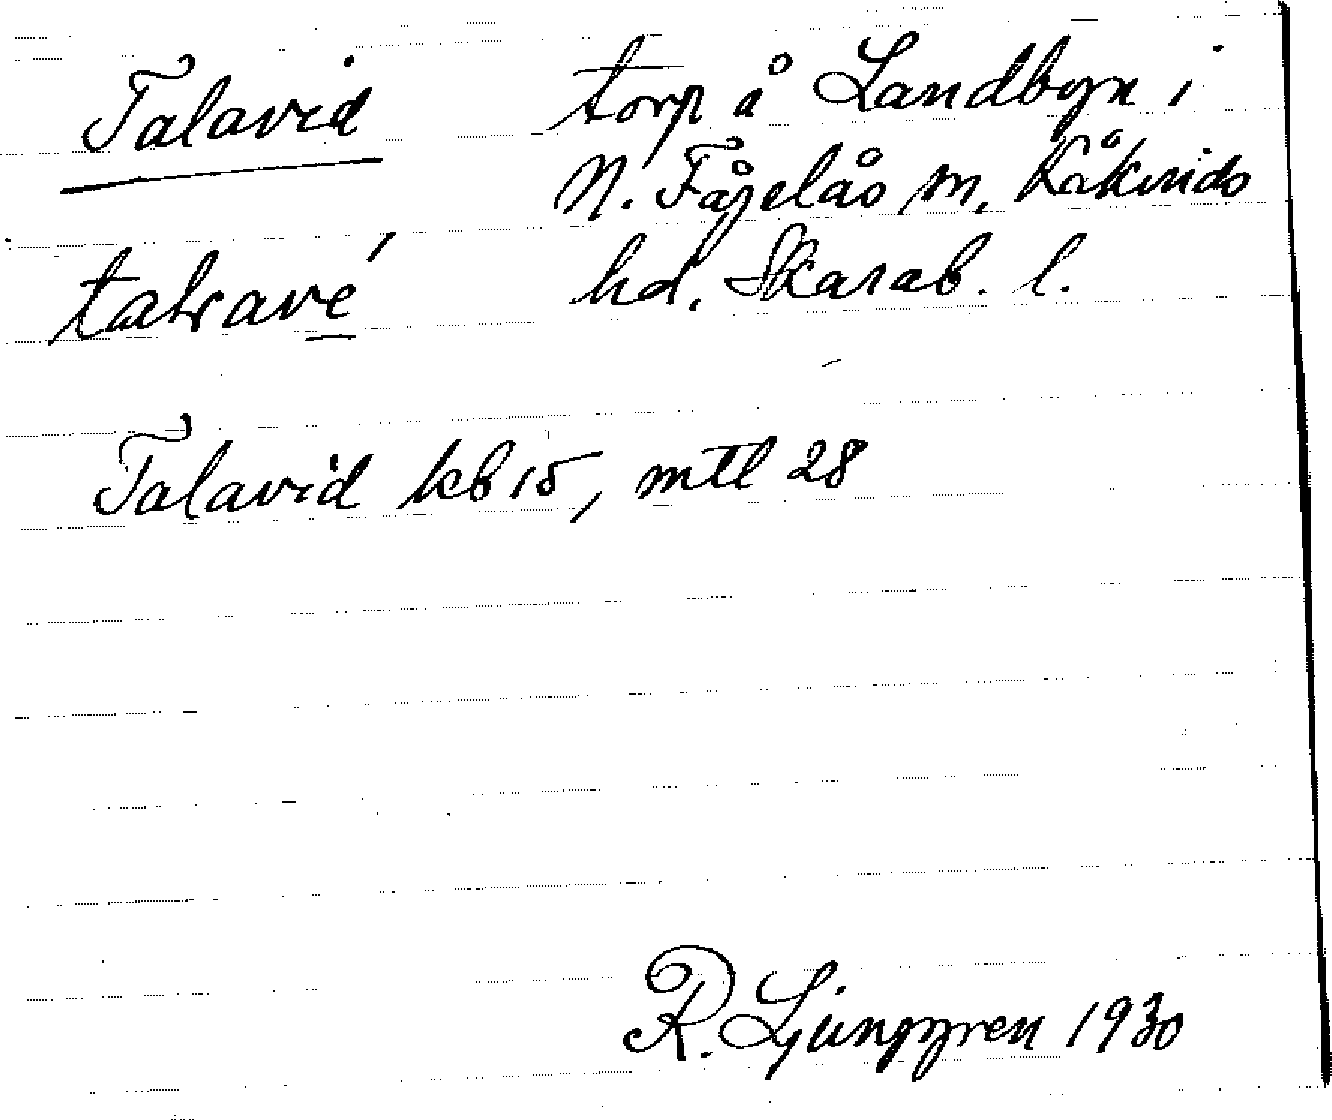 Talavid torp å Landbyn i
N. Fågelås sn, Kåkinds
talravé hd, Skarab. l.
Talavid kb 15, mtl 28
R. Ljunggren 1930